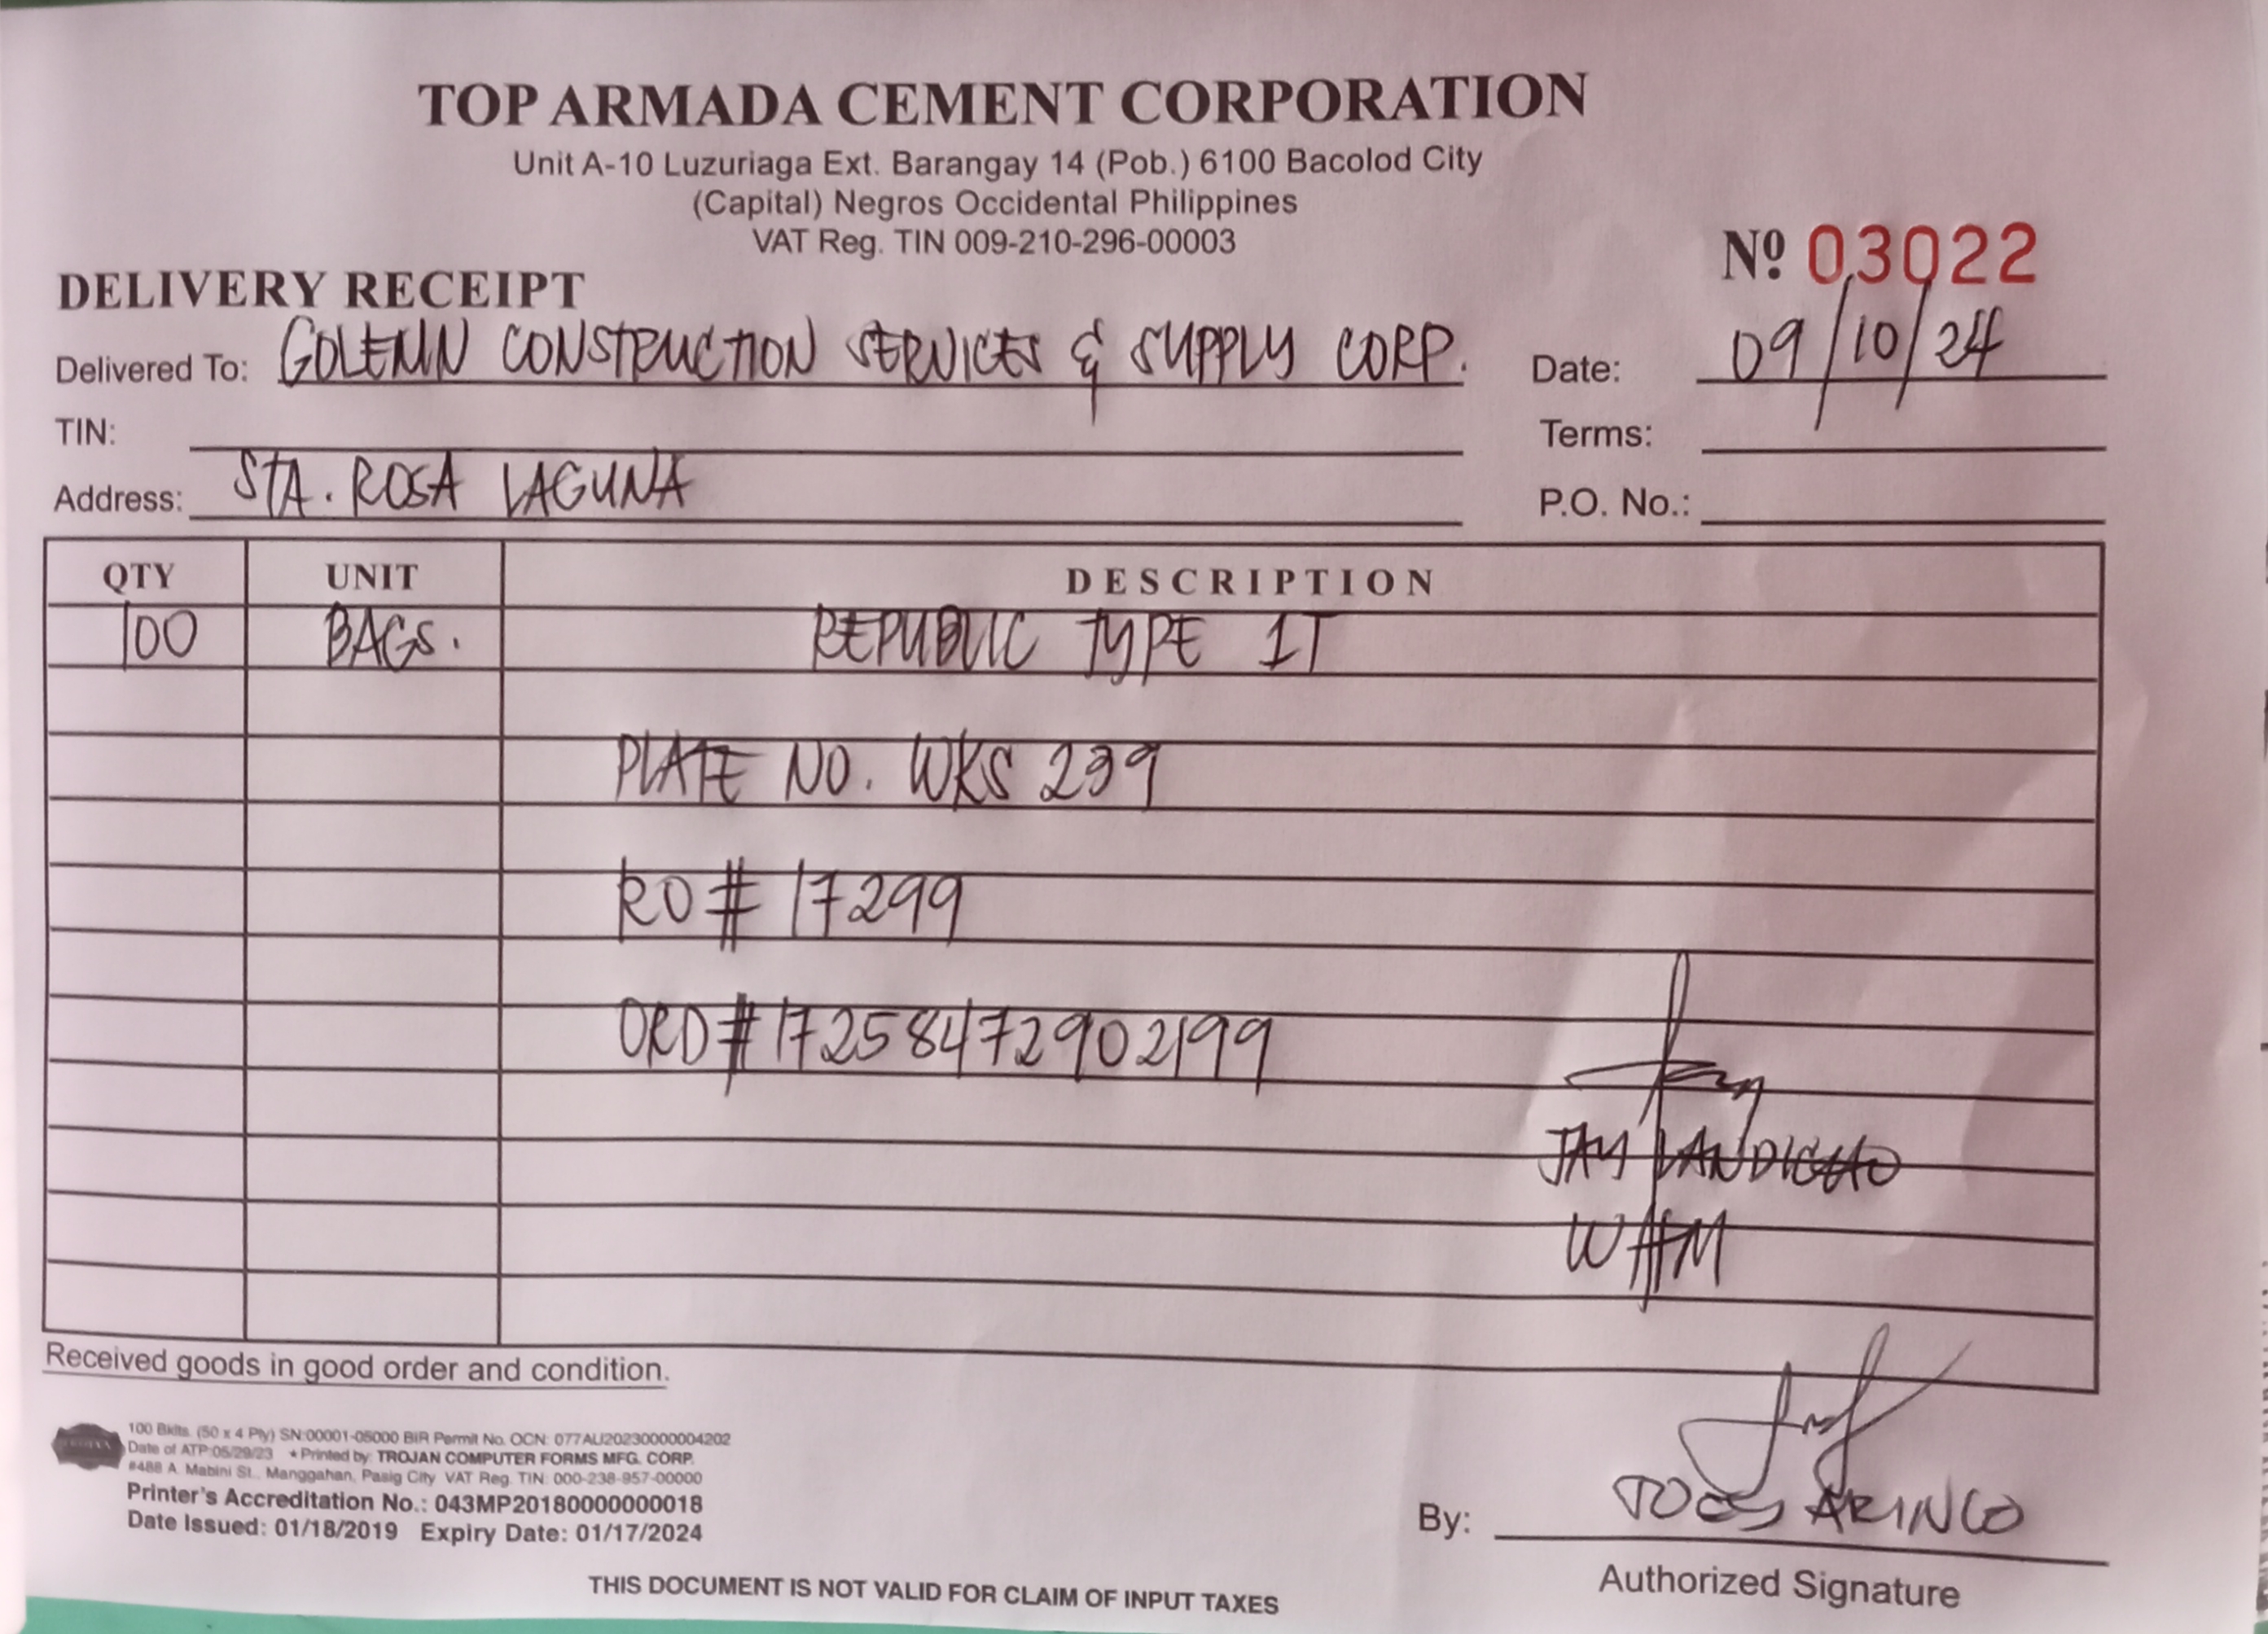 TOP ARMADA CEMENT CORPORATION
Unit A-10 Luzuriaga Ext. Barangay 14 (Pob.) 6100 Bacolod City
(Capital) Negros Occidental Philippines
VAT Reg. TIN 009-210-296-00003
Nº 03022
DELIVERY RECEIPT
Delivered To: GOLEMN CONSTRUCTION SERVICES & SUPPLY CORP. Date: 09/10/24
TIN: Terms:
Address: STA. ROSA LAGUNA P.O. No.:
QTY UNIT DESCRIPTION
100 BAGS. REPUBLIC TYPE 1T
PLATE NO. WKS 239
RO# 17299
ORD# 17258472902199
JAY LANDICHO
WHM
Received goods in good order and condition.
100 Bklts. (50 x 4 Ply) SN:00001-05000 BIR Permit No. OCN: 077AU20230000004202
Date of ATP:05/29/23 * Printed by: TROJAN COMPUTER FORMS MFG. CORP.
#488 A. Mabini St., Manggahan, Pasig City VAT Reg. TIN: 000-238-957-00000
Printer's Accreditation No.: 043MP20180000000018
Date Issued: 01/18/2019 Expiry Date: 01/17/2024
By: ARINGO
Authorized Signature
THIS DOCUMENT IS NOT VALID FOR CLAIM OF INPUT TAXES